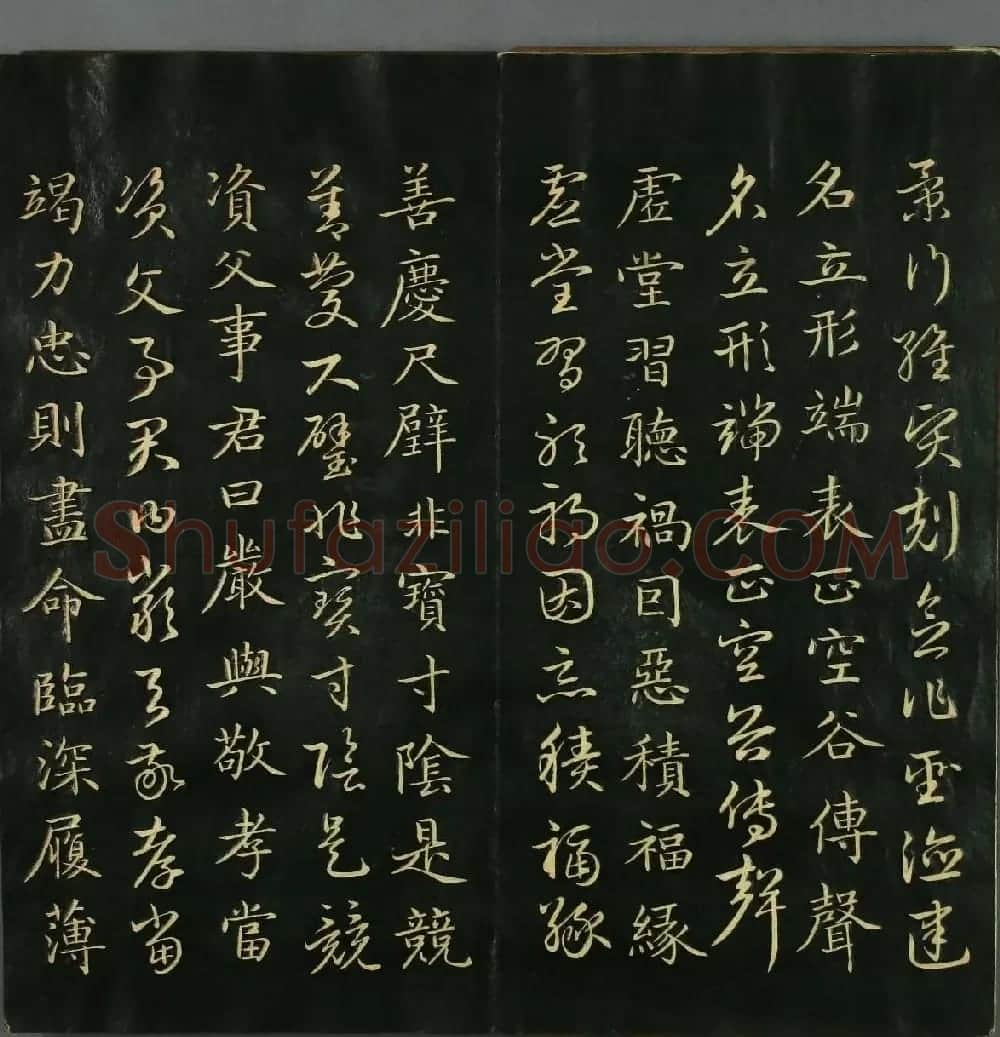 景行維賢剋念作聖德建
名立形端表正空谷傳聲
名立形端表正空谷傳聲
虛堂習聽禍因惡積福緣
虛堂習聽禍因惡積福緣
善慶尺璧非寶寸陰是競
善慶尺璧非寶寸陰是競
資父事君曰嚴與敬孝當
資父事君曰嚴與敬孝當
竭力忠則盡命臨深履薄
Shufaziliao.COM